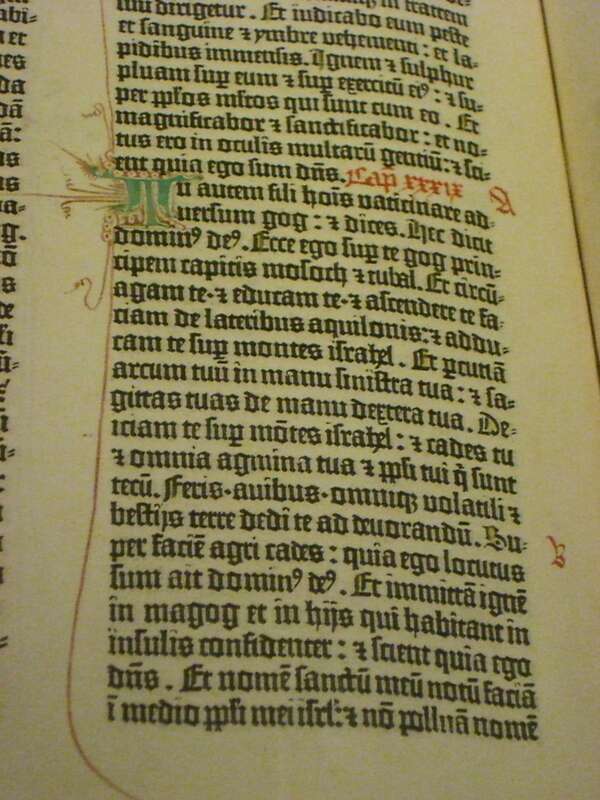 imu dirigetur. Et iudicabo eum peste
et sanguine ⁊ ymbre vehementi: et la-
pidibus immensis. Ignem ⁊ sulphur
pluam suꝑ eum ⁊ suꝑ exercitū eiꝰ: ⁊ su-
per pp̄los ml̄tos qui sunt cum eo. Et
magnificabor ⁊ sanctificabor: et no-
tus ero in oculis multarū gentiū: ⁊ sci-
ent quia ego sum dn̄s. Cap xxxix A
Tu autem fili hoīs vaticinare ad-
uersum gog: ⁊ dices. Hec dicit
dominꝰ deꝰ. Ecce ego suꝑ te gog prin-
cipem capitis mosoch ⁊ tubal. Et circū-
agam te· ⁊ educam te· ⁊ ascendere te fa-
ciam de lateribus aquilonis: ⁊ addu-
cam te suꝑ montes israhel. Et ꝑcutiā
arcum tuū in manu sinistra tua: ⁊ sa-
gittas tuas de manu dextera tua. De-
iciam te suꝑ mōtes israhel: ⁊ cades tu
⁊ omnia agmina tua ⁊ pp̄li tui q̄ sunt
tecū. Feris· auibus· omniqꝫ volatili ⁊
bestijs terre dedi te ad deuorandū. Su-
per faciē agri cades: quia ego locutus
sum ait dominꝰ deꝰ. Et immittā ignē
in magog et in hijs qui habitant in
insulis confidenter: ⁊ scient quia ego
dn̄s. Et nomē sanctū meū notū faciā
ī medio pp̄li mei isrl̄: ⁊ nō polluā nomē